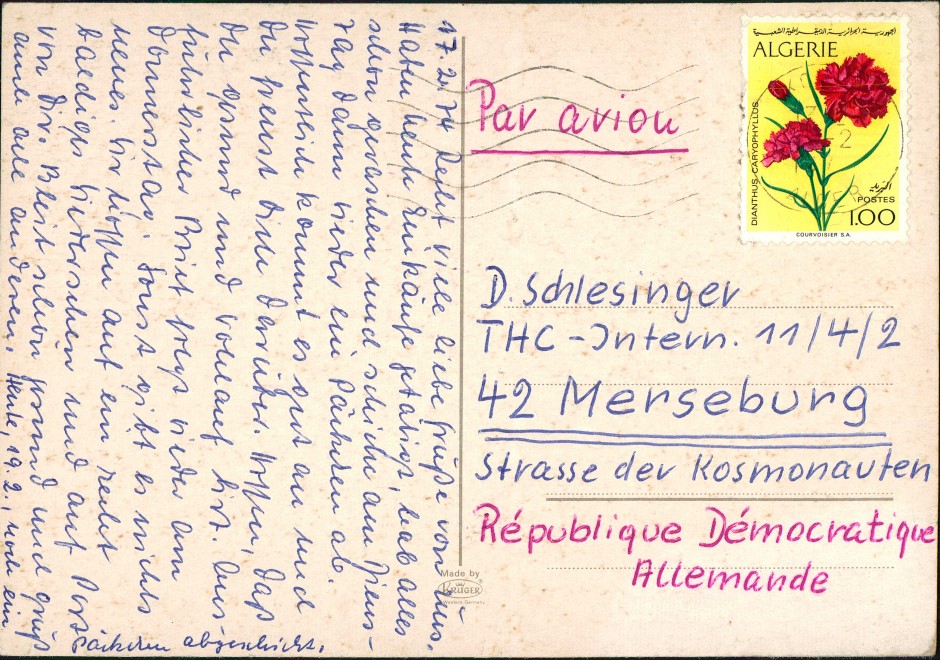 17.2.74 Recht viele liebe Grüße von uns.
Haben heute Einkäufe getätigt, hab alles
schon gewaschen und schicke am Diens-
tag dann wieder ein Päckchen ab.
Hoffentlich kommt es gut an und
Du freust Dich darüber. Hoffen, daß
Du gesund und wohlauf bist. Aus-
führlicher Brief folgt wieder am
Donnerstag. Sonst gibt es nichts
neues. Wir hoffen auf ein recht
baldiges Wiedersehen und auf Post
von Dir. Bleib schön gesund und grüß
auch alle anderen. Heute, 19.2., noch ein
Päckchen abgeschickt.
Par avion
الجمهورية الجزائرية الديمقراطية الشعبية
ALGERIE
DIANTHUS-CARYOPHYLLUS
POSTES
1.00
COURVOISIER S.A.
D. Schlesinger
THC-Intern. 11/4/2
42 Merseburg
Strasse der Kosmonauten
République Démocratique
Allemande
Made by
KRÜGER
Western Germany